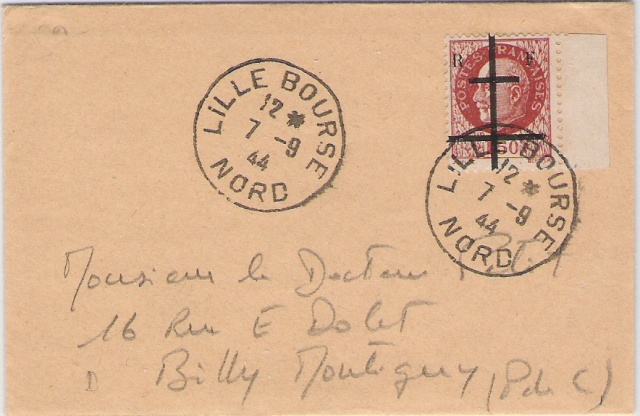 LILLE BOURSE
12 *
7 -9
44
NORD
R F
POSTES FRANÇAISES
50
LILLE BOURSE
12 *
7 -9
44
NORD
Monsieur le Docteur
16 Rue E Dolet
Billy Montigny (P de C)